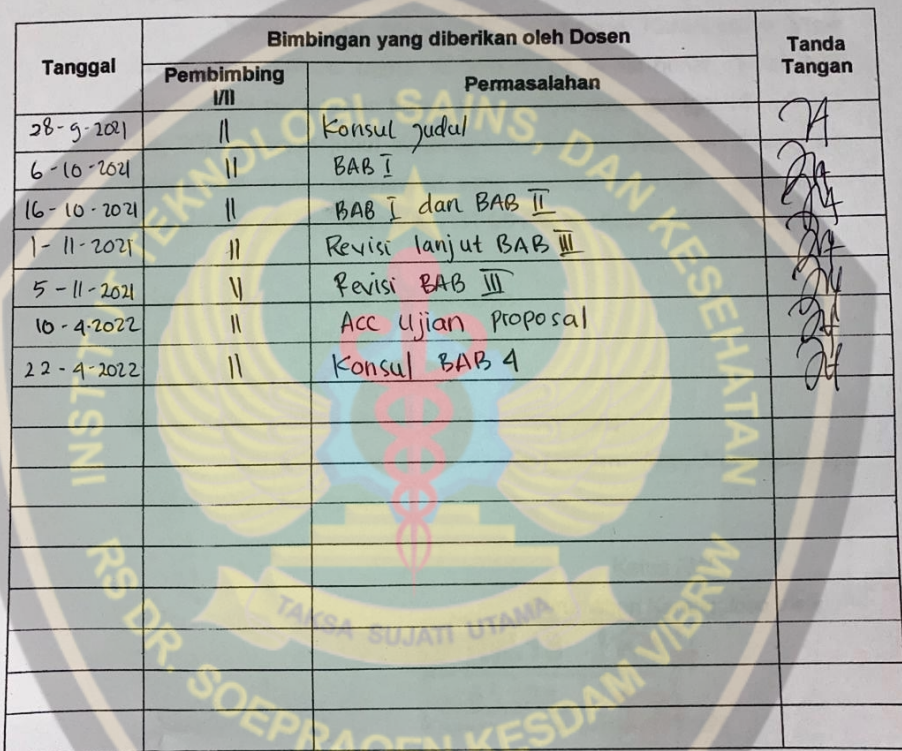 Tanggal Bimbingan yang diberikan oleh Dosen Tanda Tangan
Pembimbing I/II Permasalahan
28-9-2021 II Konsul judul
6-10-2021 II BAB I
16-10-2021 II BAB I dan BAB II
1-11-2021 II Revisi lanjut BAB III
5-11-2021 II Revisi BAB III
10-4-2022 II Acc Ujian proposal
22-4-2022 II Konsul BAB 4
INSTITUT TEKNOLOGI, SAINS, DAN KESEHATAN
TAKSA SUJATI UTAMA
RS DR. SOEPRAOEN KESDAM V/BRW